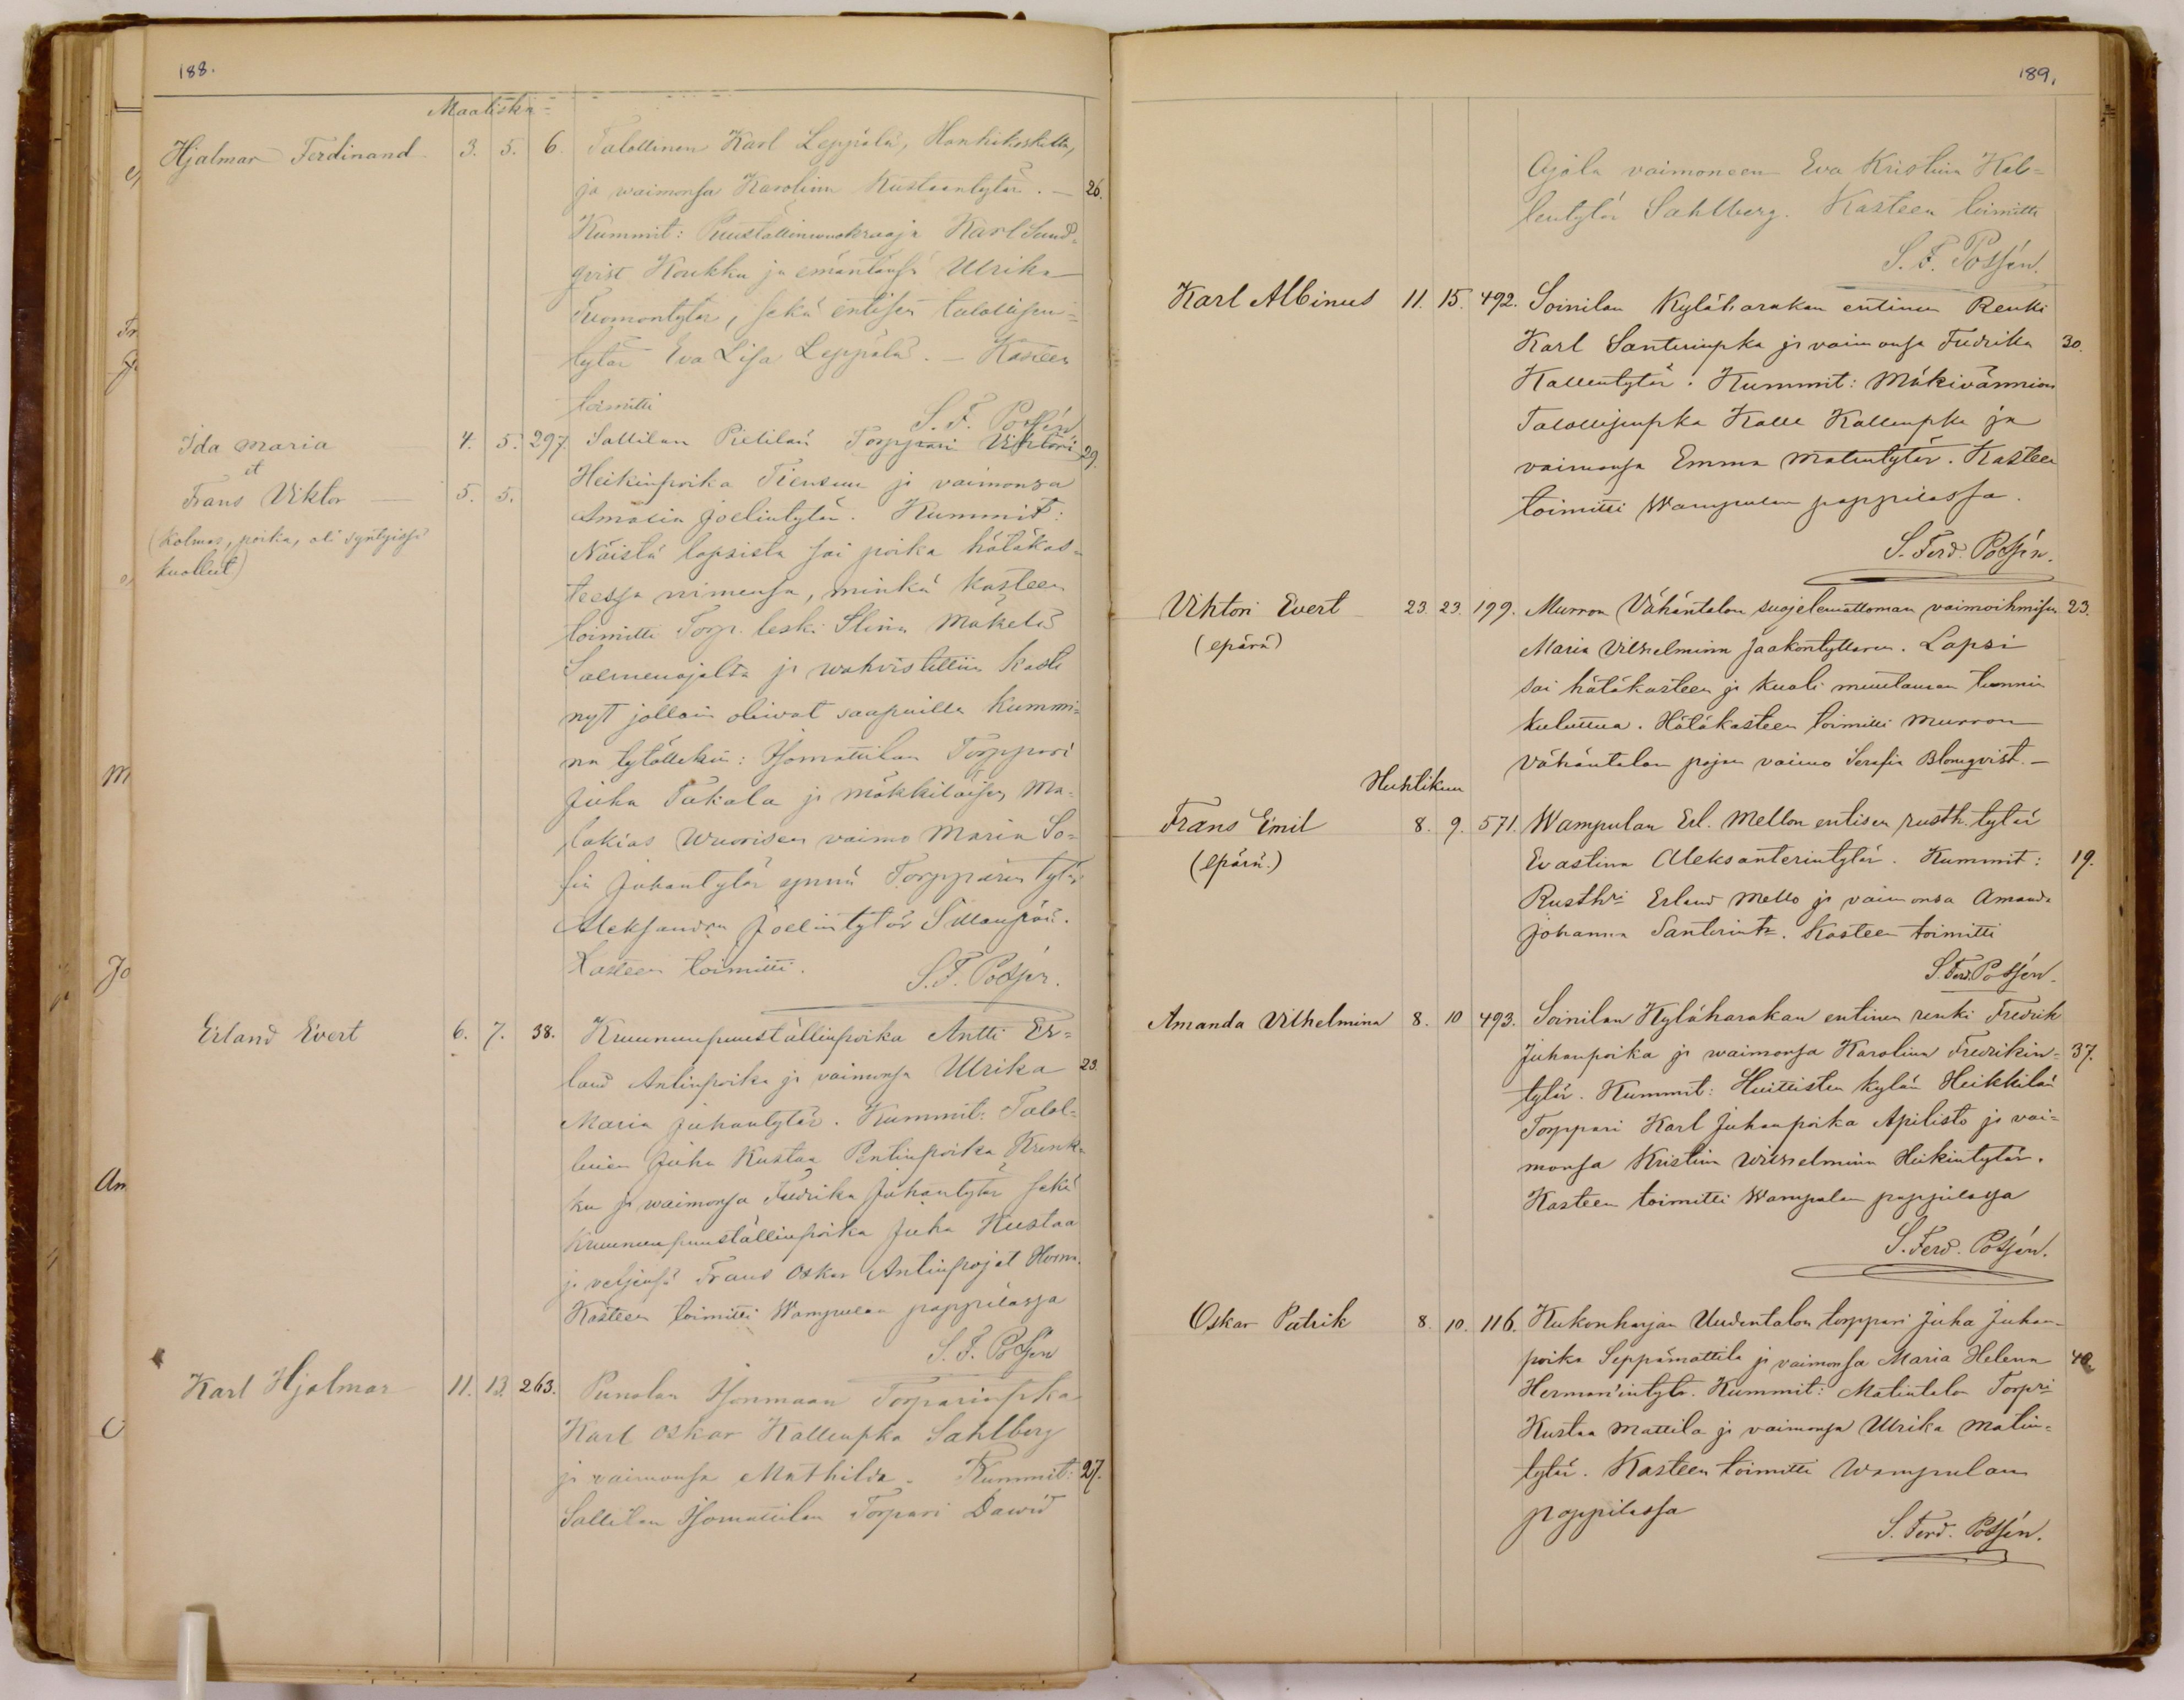 188.
Maalisku-
Hjalmar Ferdinand. 3. 5. 6. Talollinen Karl Leppälä, Hankikoskella,
ja waimonsa Karolina Kustaantytär. — 26.
Kummit: Karl Sund-
qvist Koukku ja emäntänsä Ulrika
Tuomontytär, sekä entisen talollisen-
tytär Eva Lisa Leppälä. — Kasteen
toimitti
S. F. Possén
Ida Maria 4. 5. 297. Sallilan Pietilän Torppari Vihtori 29.
et
Frans Viktor 5. 5. Heikinpoika Tiensuu ja vaimonsa
Amalia Joelintytär. Kummit:
(Kolmas, poika, oli syntyissä
kuollut.)
Näistä lapsista sai poika hätäkas-
teessa nimensä, minkä kasteen
toimitti Torp. leski Stina Mäkelä
Salmenojalta ja wahvistettiin kaste
nyt jolloin oliwat saapuilla kummi-
na tytöllekin: Isomattilan Torppari
Juha Takala ja mökkiläisen Ma-
lakias Wuorisen vaimo Maria So-
fia Juhantytär synnä Torpparin tytär
Aleksandra Joelintytär Sillanpää.
Kasteen toimitti.
S. F. Possén.
Erland Evert 6. 7. 38. Kruununpuuställinpoika Antti Er-
land Antinpoika ja vaimonsa Ulrika 23.
Maria Juhantytär. Kummit: Talol-
linen Juha Kustaa Penttinpoika Krouk-
ku ja waimonsa Fredrika Juhantytär sekä
Kruununpuuställinpoika Juha Kustaa
ja veljensä Frans Oskar Antinpojat Horma.
Kasteen toimitti Wampulan pappilassa
S. F. Possén
Karl Hjalmar 11. 13. 263. Punolan Isonmaan Torparinpka
Karl Oskar Kallenpka Sahlberg
ja vaimonsa Mathilda. Kummit: 27.
Sallilan Isomattilan Torpari Dawid
189.
Ojala vaimoneen Eva Kristina Kal-
lentytär Sahlberg. Kasteen toimitti
S. F. Possén.
Karl Albinus 11. 15. 492. Soinilan Kyläharakan entinen Renki
Karl Santerinpka ja vaimonsa Fredrika 30.
Kallentytär. Kummit: Mäkivännion
Talollisenpka Kalle Kallenpka ja
vaimonsa Emma Matintytär. Kasteen
toimitti Wampulan pappilassa.
S. Ferd. Possén.
Vihtori Evert 23. 23. 199. Murron Vähäntalon suojelemattoman vaimoihmisen 23.
(epärä) Maria Vilhelmina Jaakontyttären. Lapsi
sai hätäkasteen ja kuoli muutaman tunnin
kuluttua. Hätäkasteen toimitti Murron
Vähäntalon pajan vaimo Serafia Blomqvist. —
Huhtikuu
Frans Emil 8. 9. 571. Wampulan Erl. Mellon entisen rusth. tytär
(epärä.) Evastina Aleksanterintytär. Kummit: 19.
Rusthri Erland Mello ja vaimonsa Amanda
Johanna Santerintr. Kasteen toimitti
S. Ferd. Possén.
Amanda Vilhelmina 8. 10 493. Soinilan Kyläharakan entinen renki Fredrik
Juhanpoika ja waimonsa Karolina Fredrikin- 37.
tytär. Kummit: Huittisten kylän Heikkilän
Torppari Karl Juhanpoika Apilisto ja vai-
monsa Kristina Wilhelmiina Heikintytär.
Kasteen toimitti Wampulan pappilassa
S. Ferd. Possén.
Oskar Patrik 8. 10. 116. Kukonharjan Uudentalon torppari Juha Juhan-
poika Seppämattila ja vaimonsa Maria Helena 40.
Herman'intytr. Kummit: Matintalon Torpri
Kustaa Mattila ja vaimonsa Ulrika Matin-
tytär. Kasteen toimitti Wampulan
pappilassa
S. Ferd. Possén.